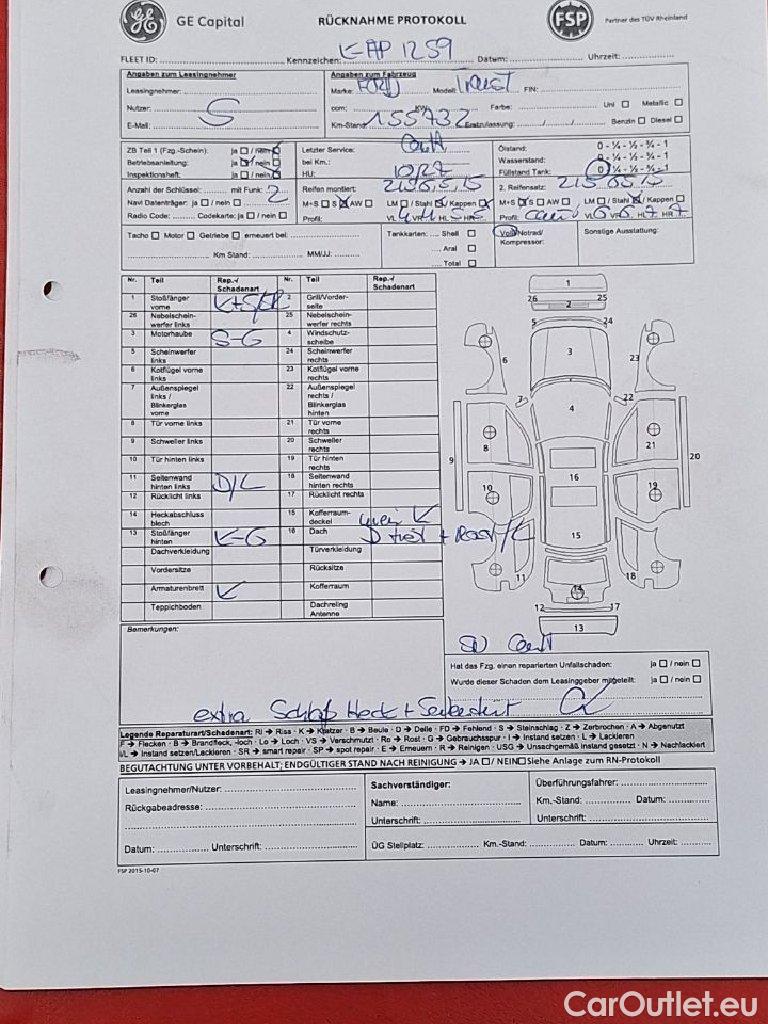 GE Capital
RÜCKNAHME PROTOKOLL
FSP
Partner des TÜV Rheinland
FLEET ID: Kennzeichen: K-AP 1259 Datum: Uhrzeit:
Angaben zum Leasingnehmer
Leasingnehmer:
Nutzer:
E-Mail:
Angaben zum Fahrzeug
Marke: FORD Modell: FIN:
ccm: KW: Farbe: Uni Metallic
Km-Stand: 155732 Erstzulassung: Benzin Diesel
ZBI Teil 1 (Fzg.-Schein): ja / nein
Betriebsanleitung: ja / nein
Inspektionsheft: ja / nein
Letzter Service:
bei Km.:
HU:
Ölstand: 0 - ¼ - ½ - ¾ - 1
Wasserstand: 0 - ¼ - ½ - ¾ - 1
Füllstand Tank: 0 - ¼ - ½ - ¾ - 1
Anzahl der Schlüssel: mit Funk: 2
Navi Datenträger: ja / nein
Radio Code: Codekarte: ja / nein
Reifen montiert:
M+S S AW LM / Stahl / Kappen
Profil: VL VR HL HR
2. Reifensatz: 215 65 15
M+S S AW LM / Stahl / Kappen
Profil: VL VR HL 7 HR 7
Tacho Motor Getriebe erneuert bei:
Km Stand: MM/JJ:
Tankkarten: Shell
Aral
Total
Voll/Notrad/
Kompressor:
Sonstige Ausstattung:
Nr. Teil Rep.-/ Schadenart Nr. Teil Rep.-/ Schadenart
1 Stoßfänger vorne 2 Grill/Vorderseite
26 Nebelscheinwerfer links 25 Nebelscheinwerfer rechts
3 Motorhaube S-G 4 Windschutzscheibe
5 Scheinwerfer links 24 Scheinwerfer rechts
6 Kotflügel vorne links 23 Kotflügel vorne rechts
7 Außenspiegel links / Blinkerglas vorne 22 Außenspiegel rechts / Blinkerglas hinten
8 Tür vorne links 21 Tür vorne rechts
9 Schweller links 20 Schweller rechts
10 Tür hinten links 19 Tür hinten rechts
11 Seitenwand hinten links D/L 18 Seitenwand hinten rechts
12 Rücklicht links 17 Rücklicht rechts
14 Heckabschlussblech 15 Kofferraumdeckel K
13 Stoßfänger hinten K-G 16 Dach
Dachverkleidung Türverkleidung
Vordersitze Rücksitze
Armaturenbrett K Kofferraum
Teppichboden Dachreling Antenne
1
26 25
2
5 24
6 3 23
7 22
4
8 21
9 20
10 16 19
15
11 18
14
12 17
13
Bemerkungen:
Hat das Fzg. einen reparierten Unfallschaden: ja / nein
Wurde dieser Schaden dem Leasinggeber mitgeteilt: ja / nein
extra
Legende Reparaturart/Schadenart: RI → Riss - K → Kratzer - B → Beule - D → Delle - FD → Fehlend - S → Steinschlag - Z → Zerbrochen - A → Abgenutzt
F → Flecken - B → Brandfleck, -loch - Lo → Loch - VS → Verschmutzt - Ro → Rost - G → Gebrauchsspur - I → Instand setzen - L → Lackieren
I/L → Instand setzen/Lackieren - SR → smart repair - SP → spot repair - E → Erneuern - IR → Reinigen - USG → Unsachgemäß instand gesetzt - N → Nachlackiert
BEGUTACHTUNG UNTER VORBEHALT; ENDGÜLTIGER STAND NACH REINIGUNG → JA / NEIN Siehe Anlage zum RN-Protokoll
Leasingnehmer/Nutzer:
Rückgabeadresse:
Datum: Unterschrift:
Sachverständige:
Name:
Unterschrift:
Überführungsfahrer:
Km.-Stand: Datum:
Unterschrift:
ÜG Stellplatz: Km.-Stand: Datum: Uhrzeit:
FSP 20/15-10-07
CarOutlet.eu